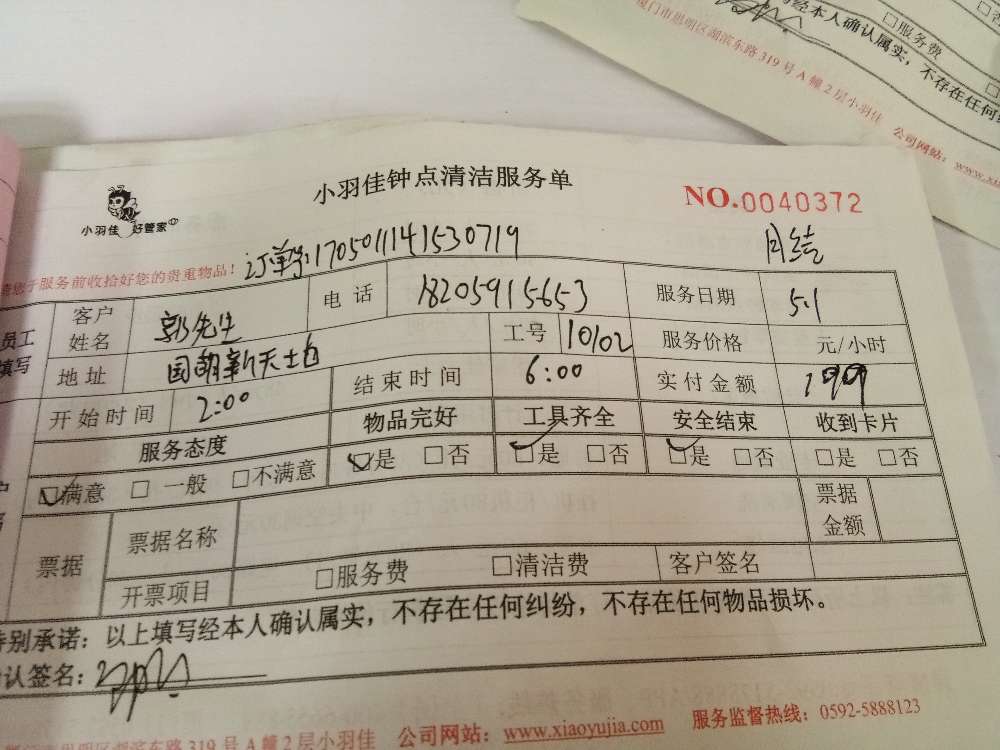 厦门市思明区湖滨东路319号A幢2层小羽佳 公司网站：www.xia
写经本人确认属实，不存在任何纠
服务费
小羽佳钟点清洁服务单
NO.0040372
小羽佳 好管家
订单号:170501141530719
月结
请您于服务前收拾好您的贵重物品！
员工
填写
客户姓名 郭先生 电话 18205915653 服务日期 5.1
地址 国贸新天地 工号 10102 服务价格 元/小时
开始时间 2:00 结束时间 6:00 实付金额 199
服务态度 物品完好 工具齐全 安全结束 收到卡片
☑满意 □一般 □不满意 ☑是 □否 ☑是 □否 ☑是 □否 □是 □否
票据 票据名称 票据金额
开票项目 □服务费 □清洁费 客户签名
特别承诺：以上填写经本人确认属实，不存在任何纠纷，不存在任何物品损坏。
确认签名：
厦门市思明区湖滨东路319号A幢2层小羽佳 公司网站：www.xiaoyujia.com 服务监督热线：0592-5888123